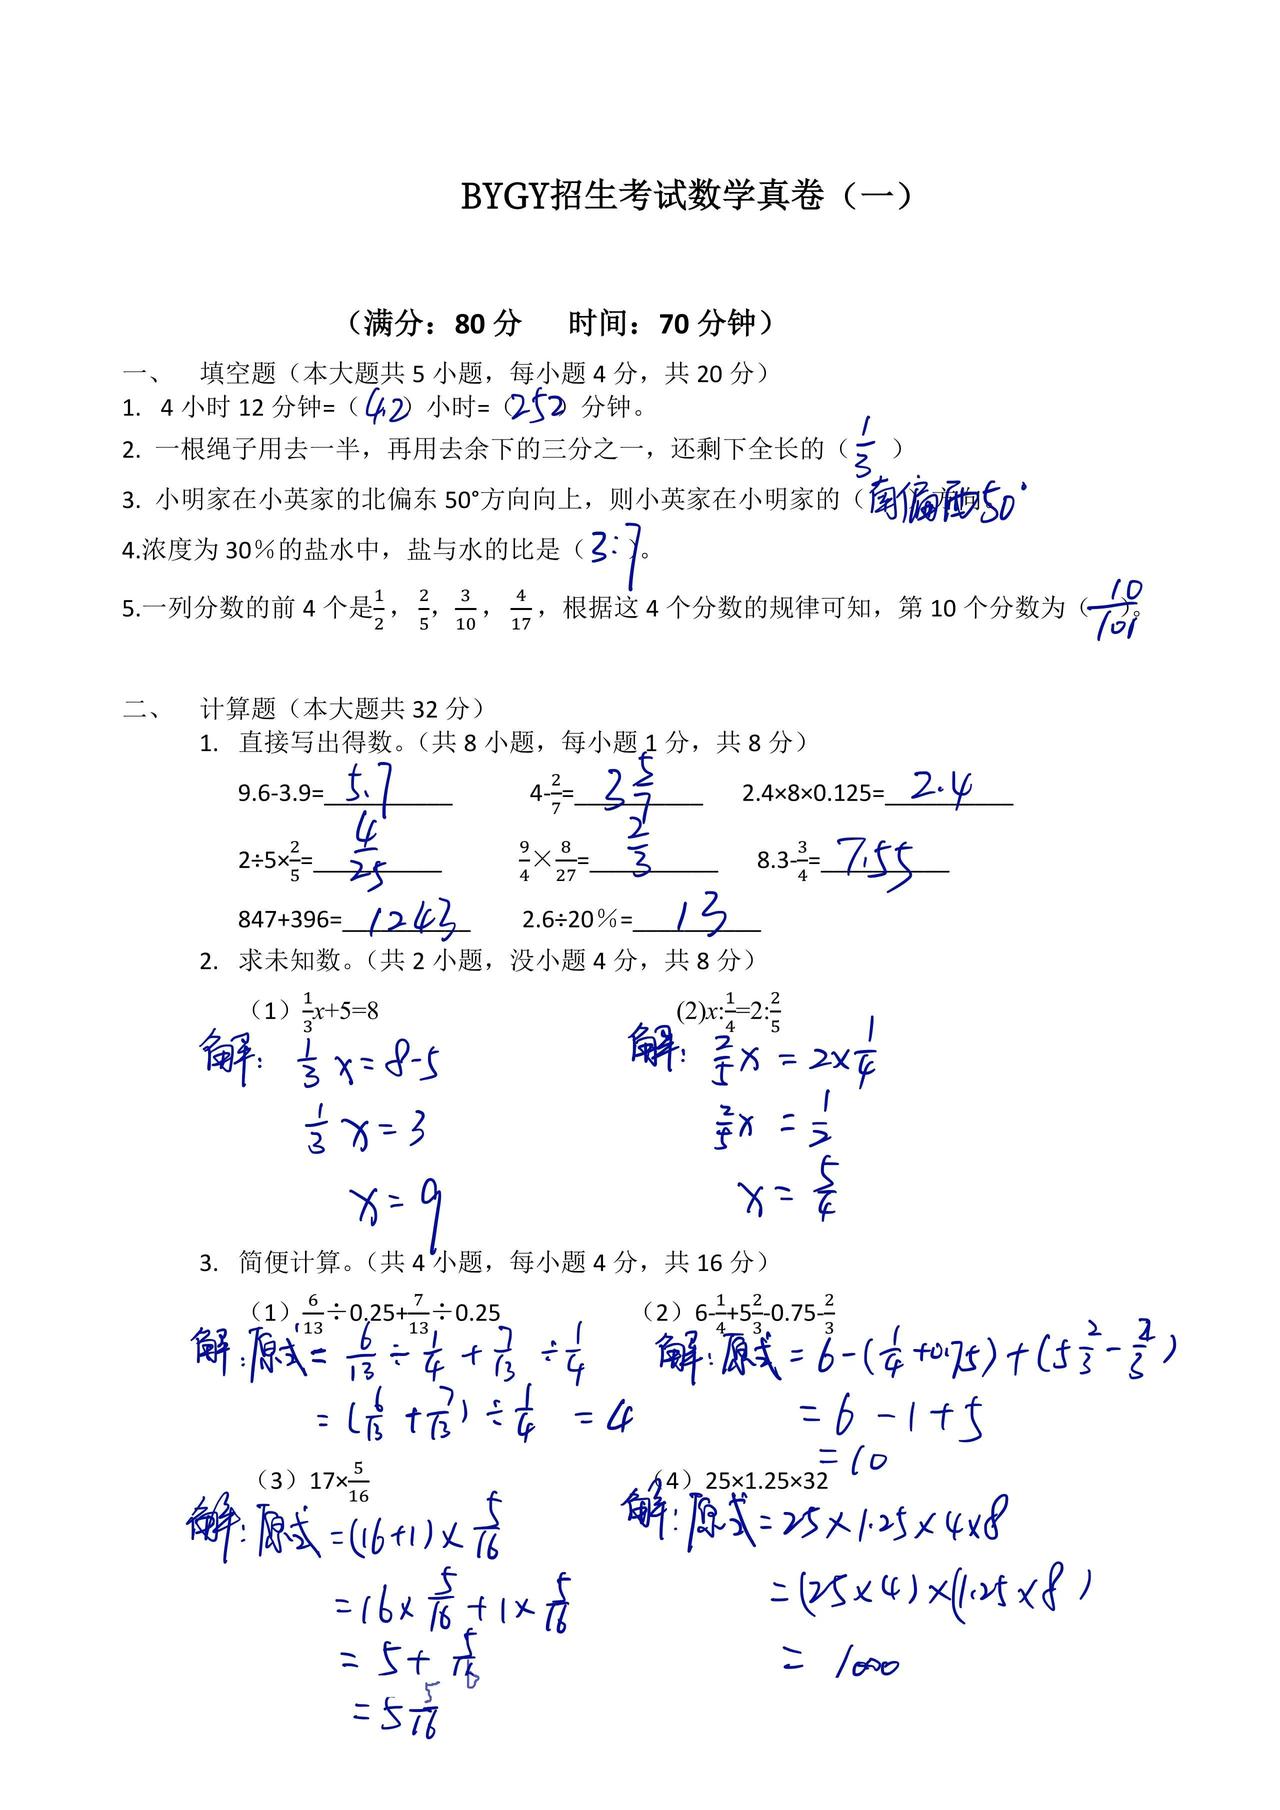 BYGY招生考试数学真卷（一）
（满分：80 分 时间：70 分钟）
一、 填空题（本大题共 5 小题，每小题 4 分，共 20 分）
1. 4 小时 12 分钟=（4.2）小时=（252）分钟。
2. 一根绳子用去一半，再用去余下的三分之一，还剩下全长的（1/3）
3. 小明家在小英家的北偏东 50°方向向上，则小英家在小明家的（南偏西50°
4.浓度为 30％的盐水中，盐与水的比是（3:7）。
5.一列分数的前 4 个是1/2，2/5，3/10，4/17，根据这 4 个分数的规律可知，第 10 个分数为（10/101）。
二、 计算题（本大题共 32 分）
1. 直接写出得数。（共 8 小题，每小题 1 分，共 8 分）
9.6-3.9=5.7 4-2/7=3 5/7 2.4×8×0.125=2.4
2÷5×2/5=4/25 9/4×8/27=2/3 8.3-3/4=7.55
847+396=1243 2.6÷20％=13
2. 求未知数。（共 2 小题，没小题 4 分，共 8 分）
（1）1/3x+5=8 (2)x:1/4=2:2/5
解： 1/3 x=8-5 解： 2/5 x=2×1/4
1/3 x=3 2/5 x=1/2
x=9 x=5/4
3. 简便计算。（共 4 小题，每小题 4 分，共 16 分）
（1）6/13÷0.25+7/13÷0.25 （2）6-1/4+5 2/3-0.75-2/3
解：原式=6/13÷1/4+7/13÷1/4 解：原式=6-(1/4+0.75)+(5 2/3-2/3)
=(6/13+7/13)÷1/4 =4 =6-1+5
=10
（3）17×5/16 （4）25×1.25×32
解：原式=(16+1)×5/16 解：原式=25×1.25×4×8
=16×5/16+1×5/16 =(25×4)×(1.25×8)
=5+5/16 =1000
=5 5/16